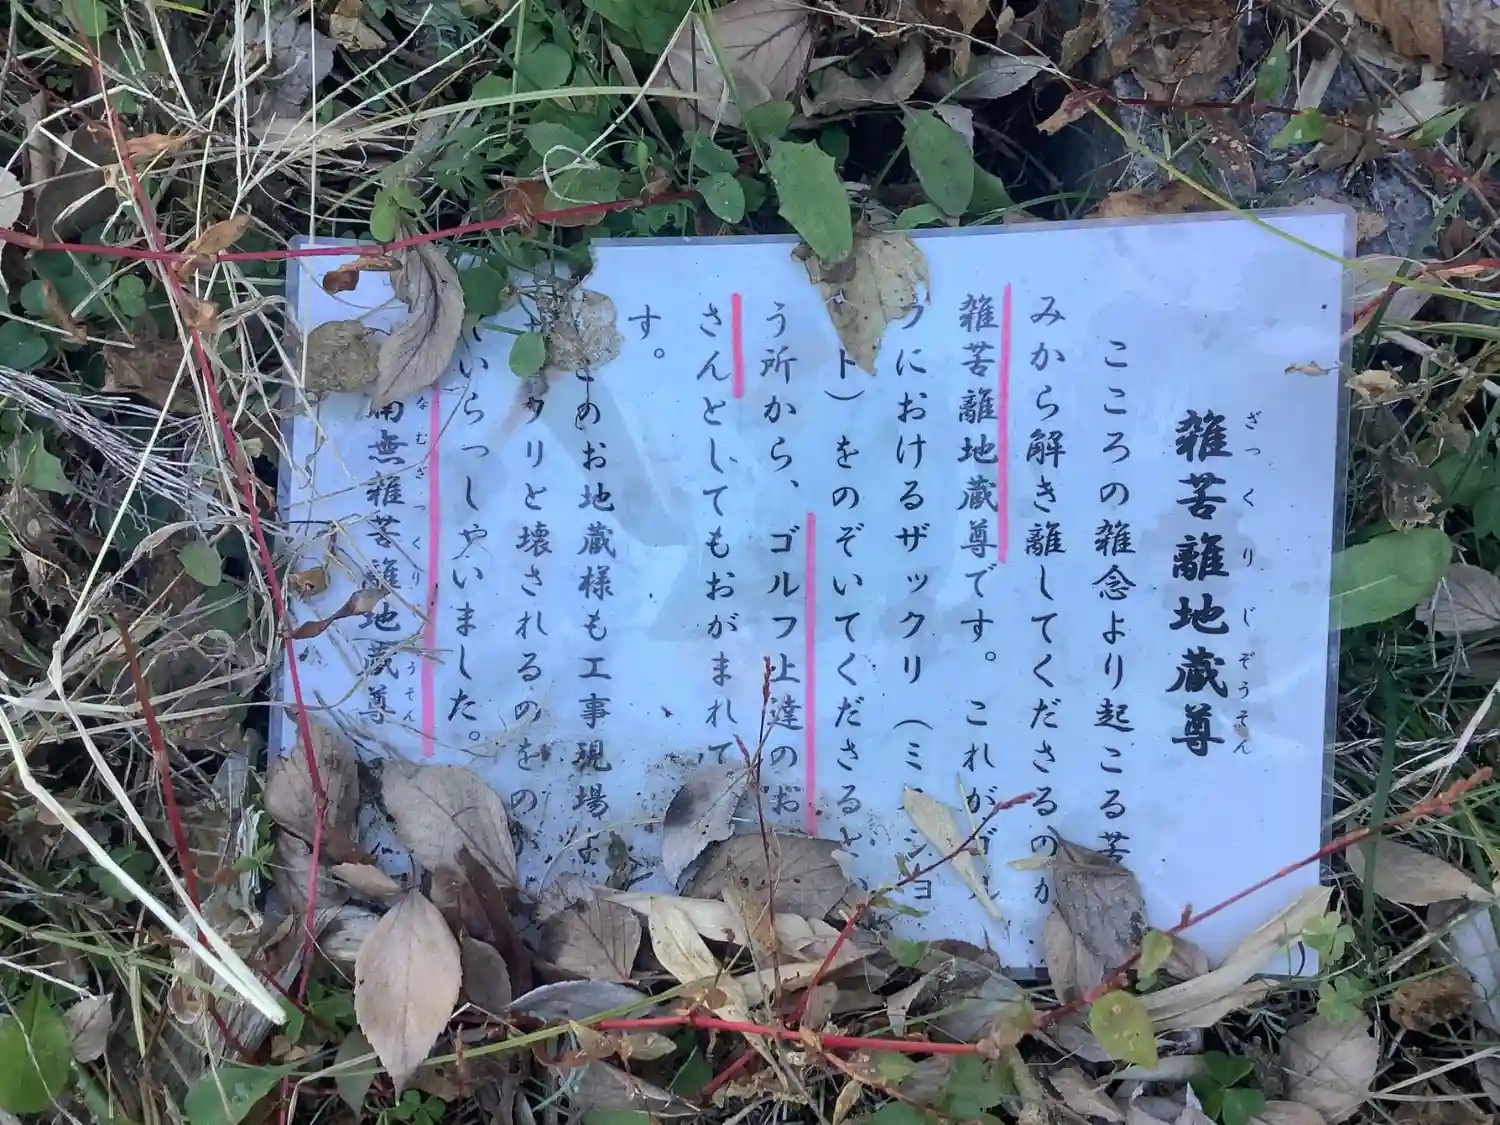 雑苦離地蔵尊
ざっくりじぞうそん
こころの雑念より起こる苦
みから解き離してくださるのが
雑苦離地蔵尊です。これがゴル
におけるザックリ(ミ ショ
ト)をのぞいてくださると、い
う所から、ゴルフ上達のお
さんとしてもおがまれて
す。
このお地蔵様も工事現場よ
クリと壊されるのをの
いらっしゃいました。
南無雑苦離地蔵尊
なむざっくり うそん